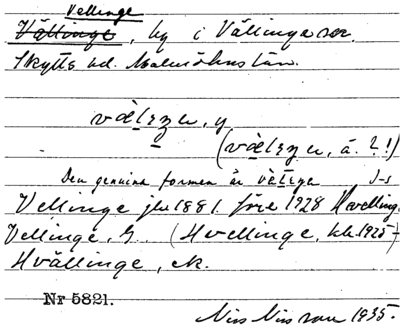 Vellinge
Vällinge, by i Vällinge sn.
Skytts hd. Malmöhus län.
vӕ̀lɩŋɛ, y
(vӕ̀lɩŋɛ, ä. ? !)
Den genuina formen är
Vellinge jb 1881. före 1928 Hvellinge
Vellinge, G. (Hvellinge, kb. 1925-
Hvällinge, ek.
Nr 5821.
Nils Nilsson 1935.